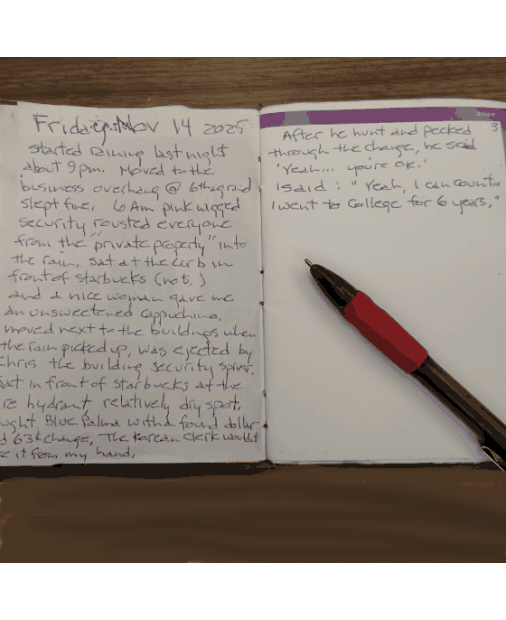 Friday Nov 14 2025
started raining last night
about 9pm. Moved to the
business overhang @ 6th grand
slept fine, 6 Am pink wigged
security rousted everyone
from the "private property" into
the rain, sat at the curb in
front of starbucks (not.)
and a nice woman gave me
an unsweetened cappuchino,
moved next to the buildings when
the rain picked up, was ejected by
Chris the building security
sat in front of starbucks at the
re hydrant relatively dry spot,
ught Blue Palma with a found dollar
d 63¢ change, The Korean clerk wouldt
e it from my hand,
3
After he hunt and pecked
through the change, he said
'Yeah... you're OK.'
I said: "Yeah, I can count...
I went to College for 6 years,"